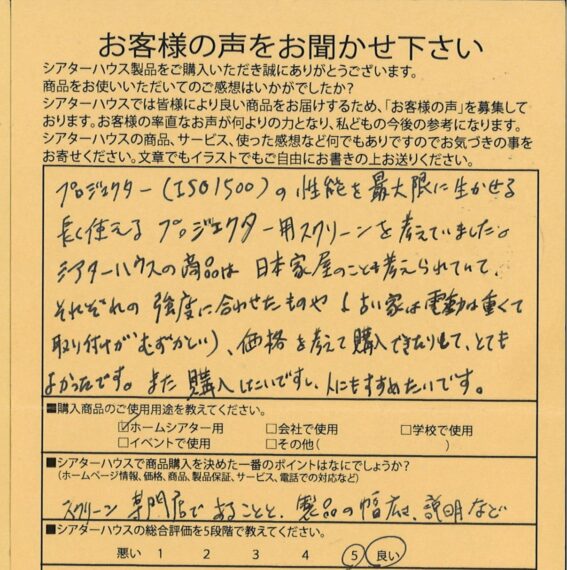 お客様の声をお聞かせ下さい
シアターハウス製品をご購入いただき誠にありがとうございます。
商品をお使いいただいてのご感想はいかがでしたか?
シアターハウスでは皆様により良い商品をお届けするため、「お客様の声」を募集して
おります。お客様の率直なお声が何よりの力となり、私どもの今後の参考になります。
シアターハウスの商品、サービス、使った感想など何でもありですのでお気づきの事を
お寄せください。文章でもイラストでもご自由にお書きの上お送りください。
プロジェクター(ISO1500)の性能を最大限に生かせる
長く使えるプロジェクター用スクリーンを考えていました。
シアターハウスの商品は日本家屋のことも考えられていて、
それぞれの強度に合わせたものや(古い家は電動は重くて
取り付けがむずかしい)、価格を考えて購入できたりして、とても
よかったです。また購入したいですし、人にもすすめたいです。
■購入商品のご使用用途を教えてください。
☑ホームシアター用 □会社で使用 □学校で使用
□イベントで使用 □その他( )
■シアターハウスで商品購入を決めた一番のポイントはなにでしょうか?
(ホームページ情報、価格、商品、製品保証、サービス、電話での対応など)
スクリーン専門店であることと、製品の幅広さ、説明など
■シアターハウスの総合評価を5段階で教えてください。
悪い 1 2 3 4 5 良い